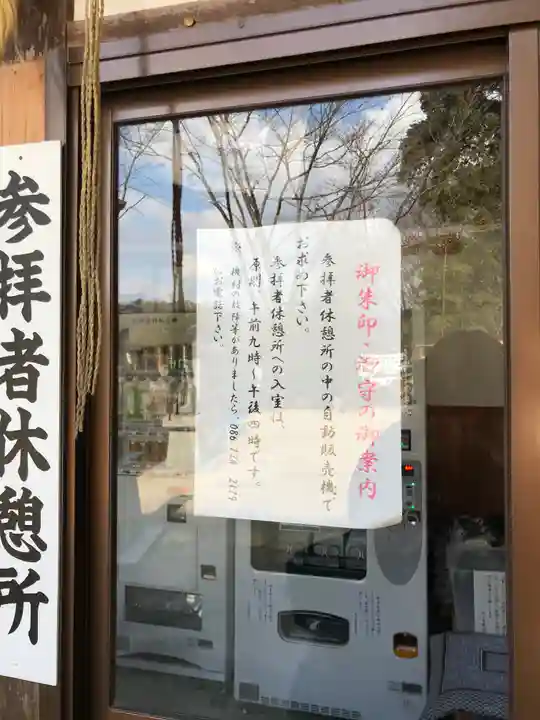 御朱印・お守の御案内
参拝者休憩所の中の自動販売機で
お求め下さい。
参拝者休憩所への入室は、
原則、午前九時～午後四時です。
機材の故障等がありましたら、086
お電話下さい。
参拝者休憩所